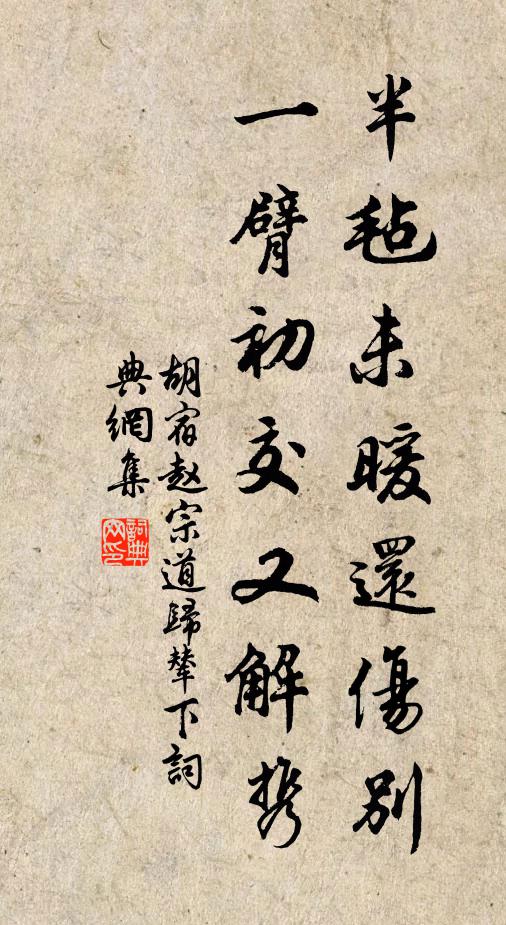 半毡未暖還傷別
一臂初交又解携
胡宿赵宗道歸輦下詞
典網集
詞典
网印